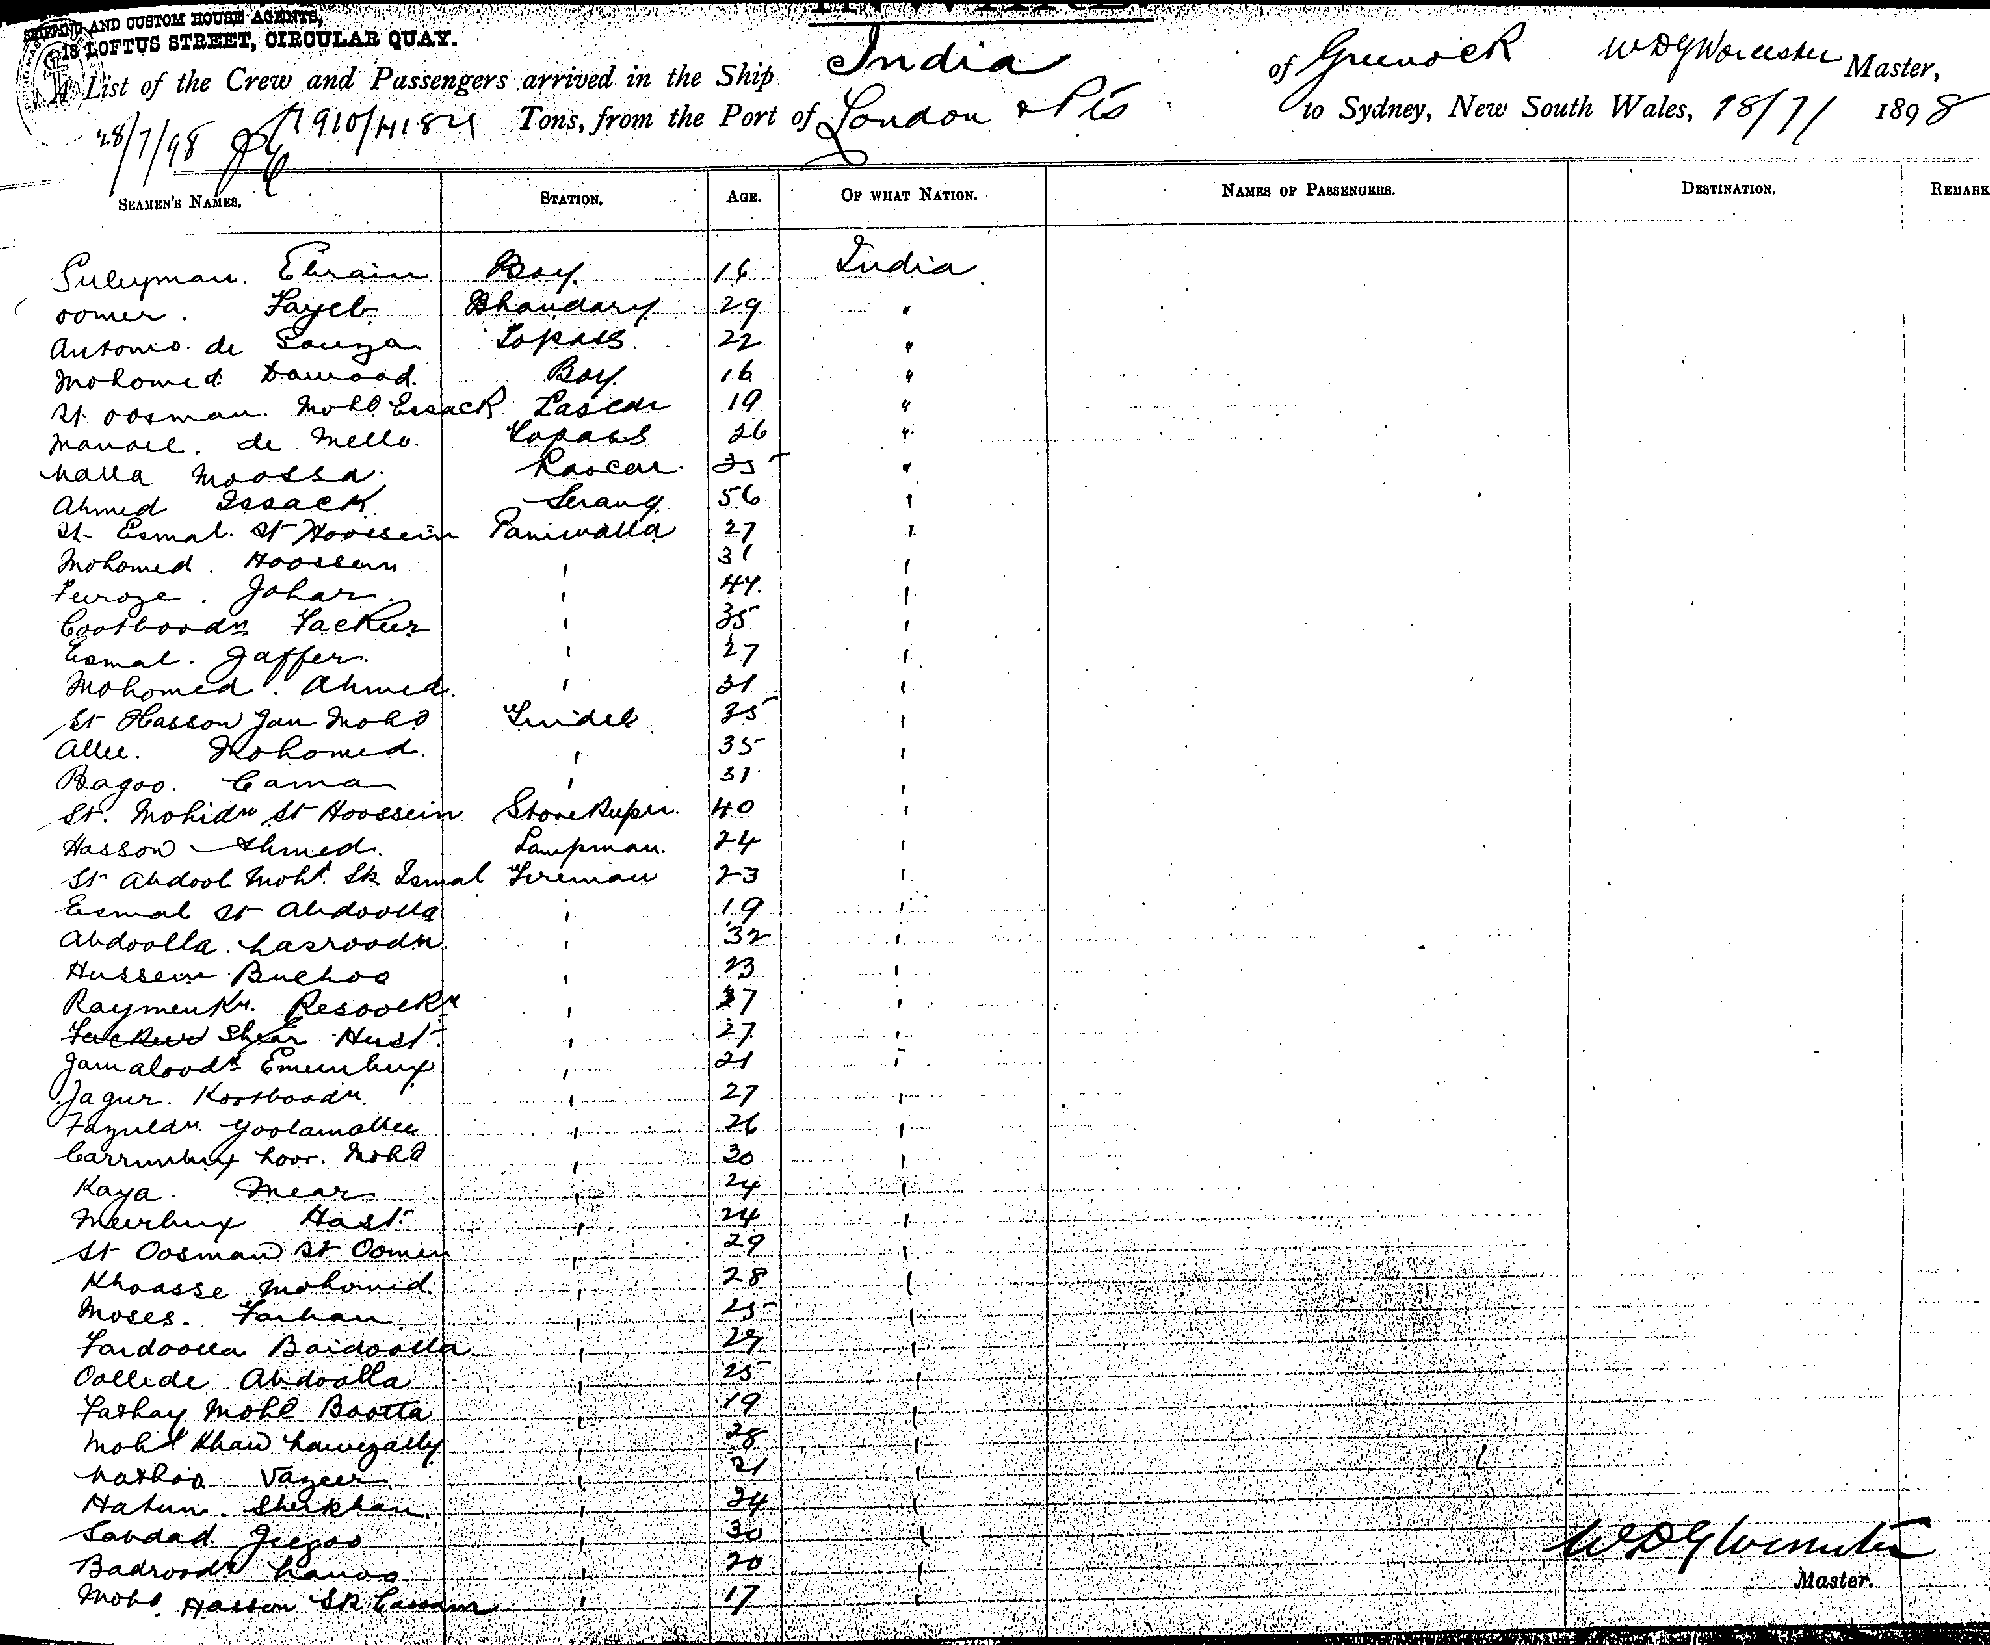 SHIPPING AND CUSTOM HOUSE AGENTS,
18 LOFTUS STREET, CIRCULAR QUAY.
A List of the Crew and Passengers arrived in the Ship India of Greenock WDGWorcester Master,
28/7/98 7910/4184 Tons, from the Port of London & Pts to Sydney, New South Wales, 18/7/ 1898
SEAMEN'S NAMES. STATION. AGE. OF WHAT NATION. NAMES OF PASSENGERS. DESTINATION. REMARK
Suleyman. Ebraim Boy. 16 India
oomer. Tayeb Bhandary 29 "
Antonio de Souza Topass 22 "
Mohomed Dawood. Boy. 16 "
St. oosman. Mohd Essack Lascar 19 "
Manoel. de Mello. Topass 26 "
Nalla Moossa. Lascar. 35 "
Ahmed Issack Serang 56 "
St. Esmal. St Hoossein Paniwalla 27 "
Mohomed. Hoossein " 31 "
Feroze. Johar. " 44. "
Cootboodn Fackur " 35 "
Esmal. Jaffer. " 27 "
Mohomed. Ahmed. " 31 "
St Hasson Jan Mohd Tindel 35 "
Allee. Mohomed. " 35 "
Bagoo. Cama " 31 "
St. Mohidn St Hoossein Storekeeper. 40 "
Hasson Ahmed. Lampman. 24 "
St Abdool Mohd. Sk Ismal Fireman 23 "
Esmal St Abdoolla " 19 "
Abdoolla. Nasroodn. " 32 "
Hussein Buchoo " 23 "
Raymenkn. Resoolkn " 27 "
Fuckeer Shear Hust. " 27 "
Jamaloodn Emembux " 21 "
Jagur. Kootboodn. " 27 "
Fazuldn. Goolamallee " 26 "
Carrimbux Noor. Mohd " 30 "
Kaya. Mear " 24 "
Meerbux Hast. " 24 "
St Oosman St Oomer " 29 "
Khoasse Mohomed. " 28 "
Moses. Farhan. " 25 "
Fardoolla Baidoolla " 29 "
Oollede Abdoolla " 25 "
Fathay Mohd Bootta " 19 "
Mohd Khan " 28 "
Nathoo Vazeer " 21 "
Hatum. Sherkhan. " 24 "
Sabdad. " 30 "
Badroodn " 20 "
Mohd. Hasson Sk Cassam " 17 "
WDGWorcester
Master.